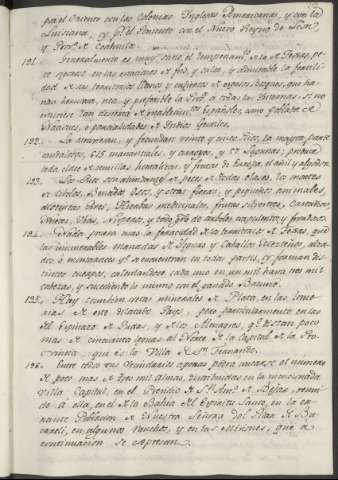 por el Oriente con las Colonias Ynglesas Americanas, y con la
Luisiana, y por el Poniente con el Nuevo Reyno de Leon
y Prov.ª de Coahuila.
121. Generalmente es muy sano el temperamento de la de Texas, pe-
ro en las estaciones de frio, y calor, y admirable la fertilidad
de sus territorios llanos y en
han hermosa, rica, y preferible la Prov.ª á todas las Ynternas si no
estuviese tan desierta de Españoles, como poblada de
Rancherias, ó parcialidades de Yndios Gentiles.
122. La atraviesan, y fecundan veinte y cinco Rios, la mayor parte
caudalosos, 615 manantiales, y arroyos, y 27 Lagunas: produce
toda clase de semillas hortalizas, y frutas de Europa, el añil y algodon.
123. Los Rios abundan de peces, de todas clases, los montes
de Cibolos, Benados, Osos, y otras fieras, y pequeños animales,
diversas abes, Hierbas medicinales, frutas silvestres, Castañas,
Nueces, Ubas, Nisperos, y todo genero de arboles corpulentos, y frondosos.
124. Nada prueba mas la feracidad de la territorios de Texas, que
las innumerables manadas de Yeguas y Caballos Mesteños, alza-
dos ó montaraces que se encuentran en todas partes, y forman dis-
tintos cuerpos, calculandose cada uno en un mil hasta tres mil
cabezas, y sucediendo lo mismo con el ganado Bacuno.
125. Hay tambien ciertos minerales de Plata, en las lexa-
nias de este dilatado Pays, pero particularmente en las
del Espinazo de Judas, y de los Almagres, q.e distan poco
mas de cincuenta leguas al Norte de la Capital de la Pro-
vincia, que es la Villa de S.n Fernando.
126. Entre todo su vecindario apenas podra contarse el numero
de poco mas de tres mil almas, distribuidas en la mencionada
Villa Capital, en el Presidio de S.n Ant.º de Bejar, reuni-
do á ella, en el de la Bahia del Espiritu Santo, en la er-
rante Poblacion de Nuestra Señora del Pilar de Bu-
careli, en algunos ranchos, y en las Misiones, que á
continuacion se expresan.